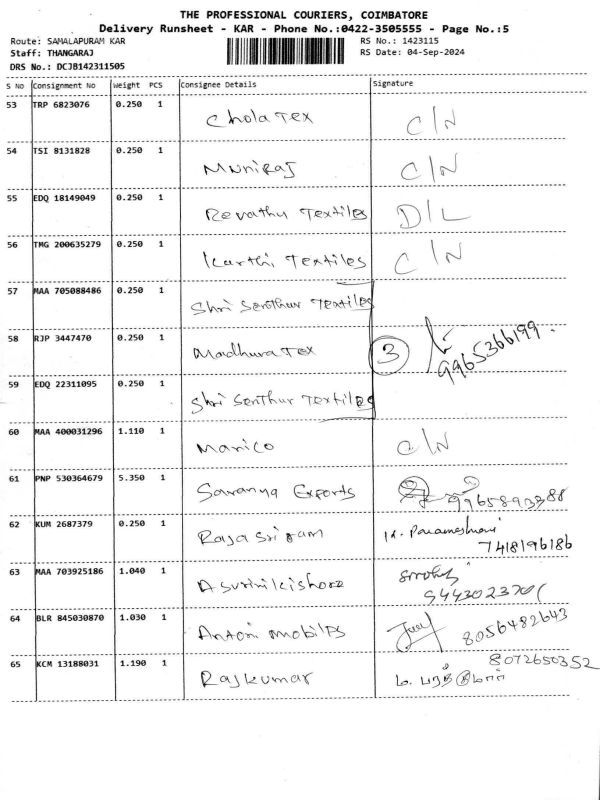 THE PROFESSIONAL COURIERS, COIMBATORE
Delivery Runsheet - KAR - Phone No.:0422-3505555 - Page No.:5
Route: SAMALAPURAM KAR RS No.: 1423115
Staff: THANGARAJ RS Date: 04-Sep-2024
DRS No.: DCJB142311505
S No Consignment No Weight PCS Consignee Details Signature
53 TRP 6823076 0.250 1 Chola Tex C/N
54 TSI 8131828 0.250 1 Muniraj C/N
55 EDQ 18149049 0.250 1 Revathy Textiles D/L
56 TMG 200635279 0.250 1 Karthi Textiles C/N
57 MAA 705088486 0.250 1 Shri Senthur Textiles
58 RJP 3447470 0.250 1 Madhura Tex 3 9965366199
59 EDQ 22311095 0.250 1 Shri Senthur Textiles
60 MAA 400031296 1.110 1 Marico C/N
61 PNP 530364679 5.350 1 Saranya Exports
62 KUM 2687379 0.250 1 Raja Sriram K. Parameshwari
7418196186
63 MAA 703925186 1.040 1
64 BLR 845030870 1.030 1 Antoni Mobiles 8056482643
8072650352
65 KCM 13188031 1.190 1 Rajkumar